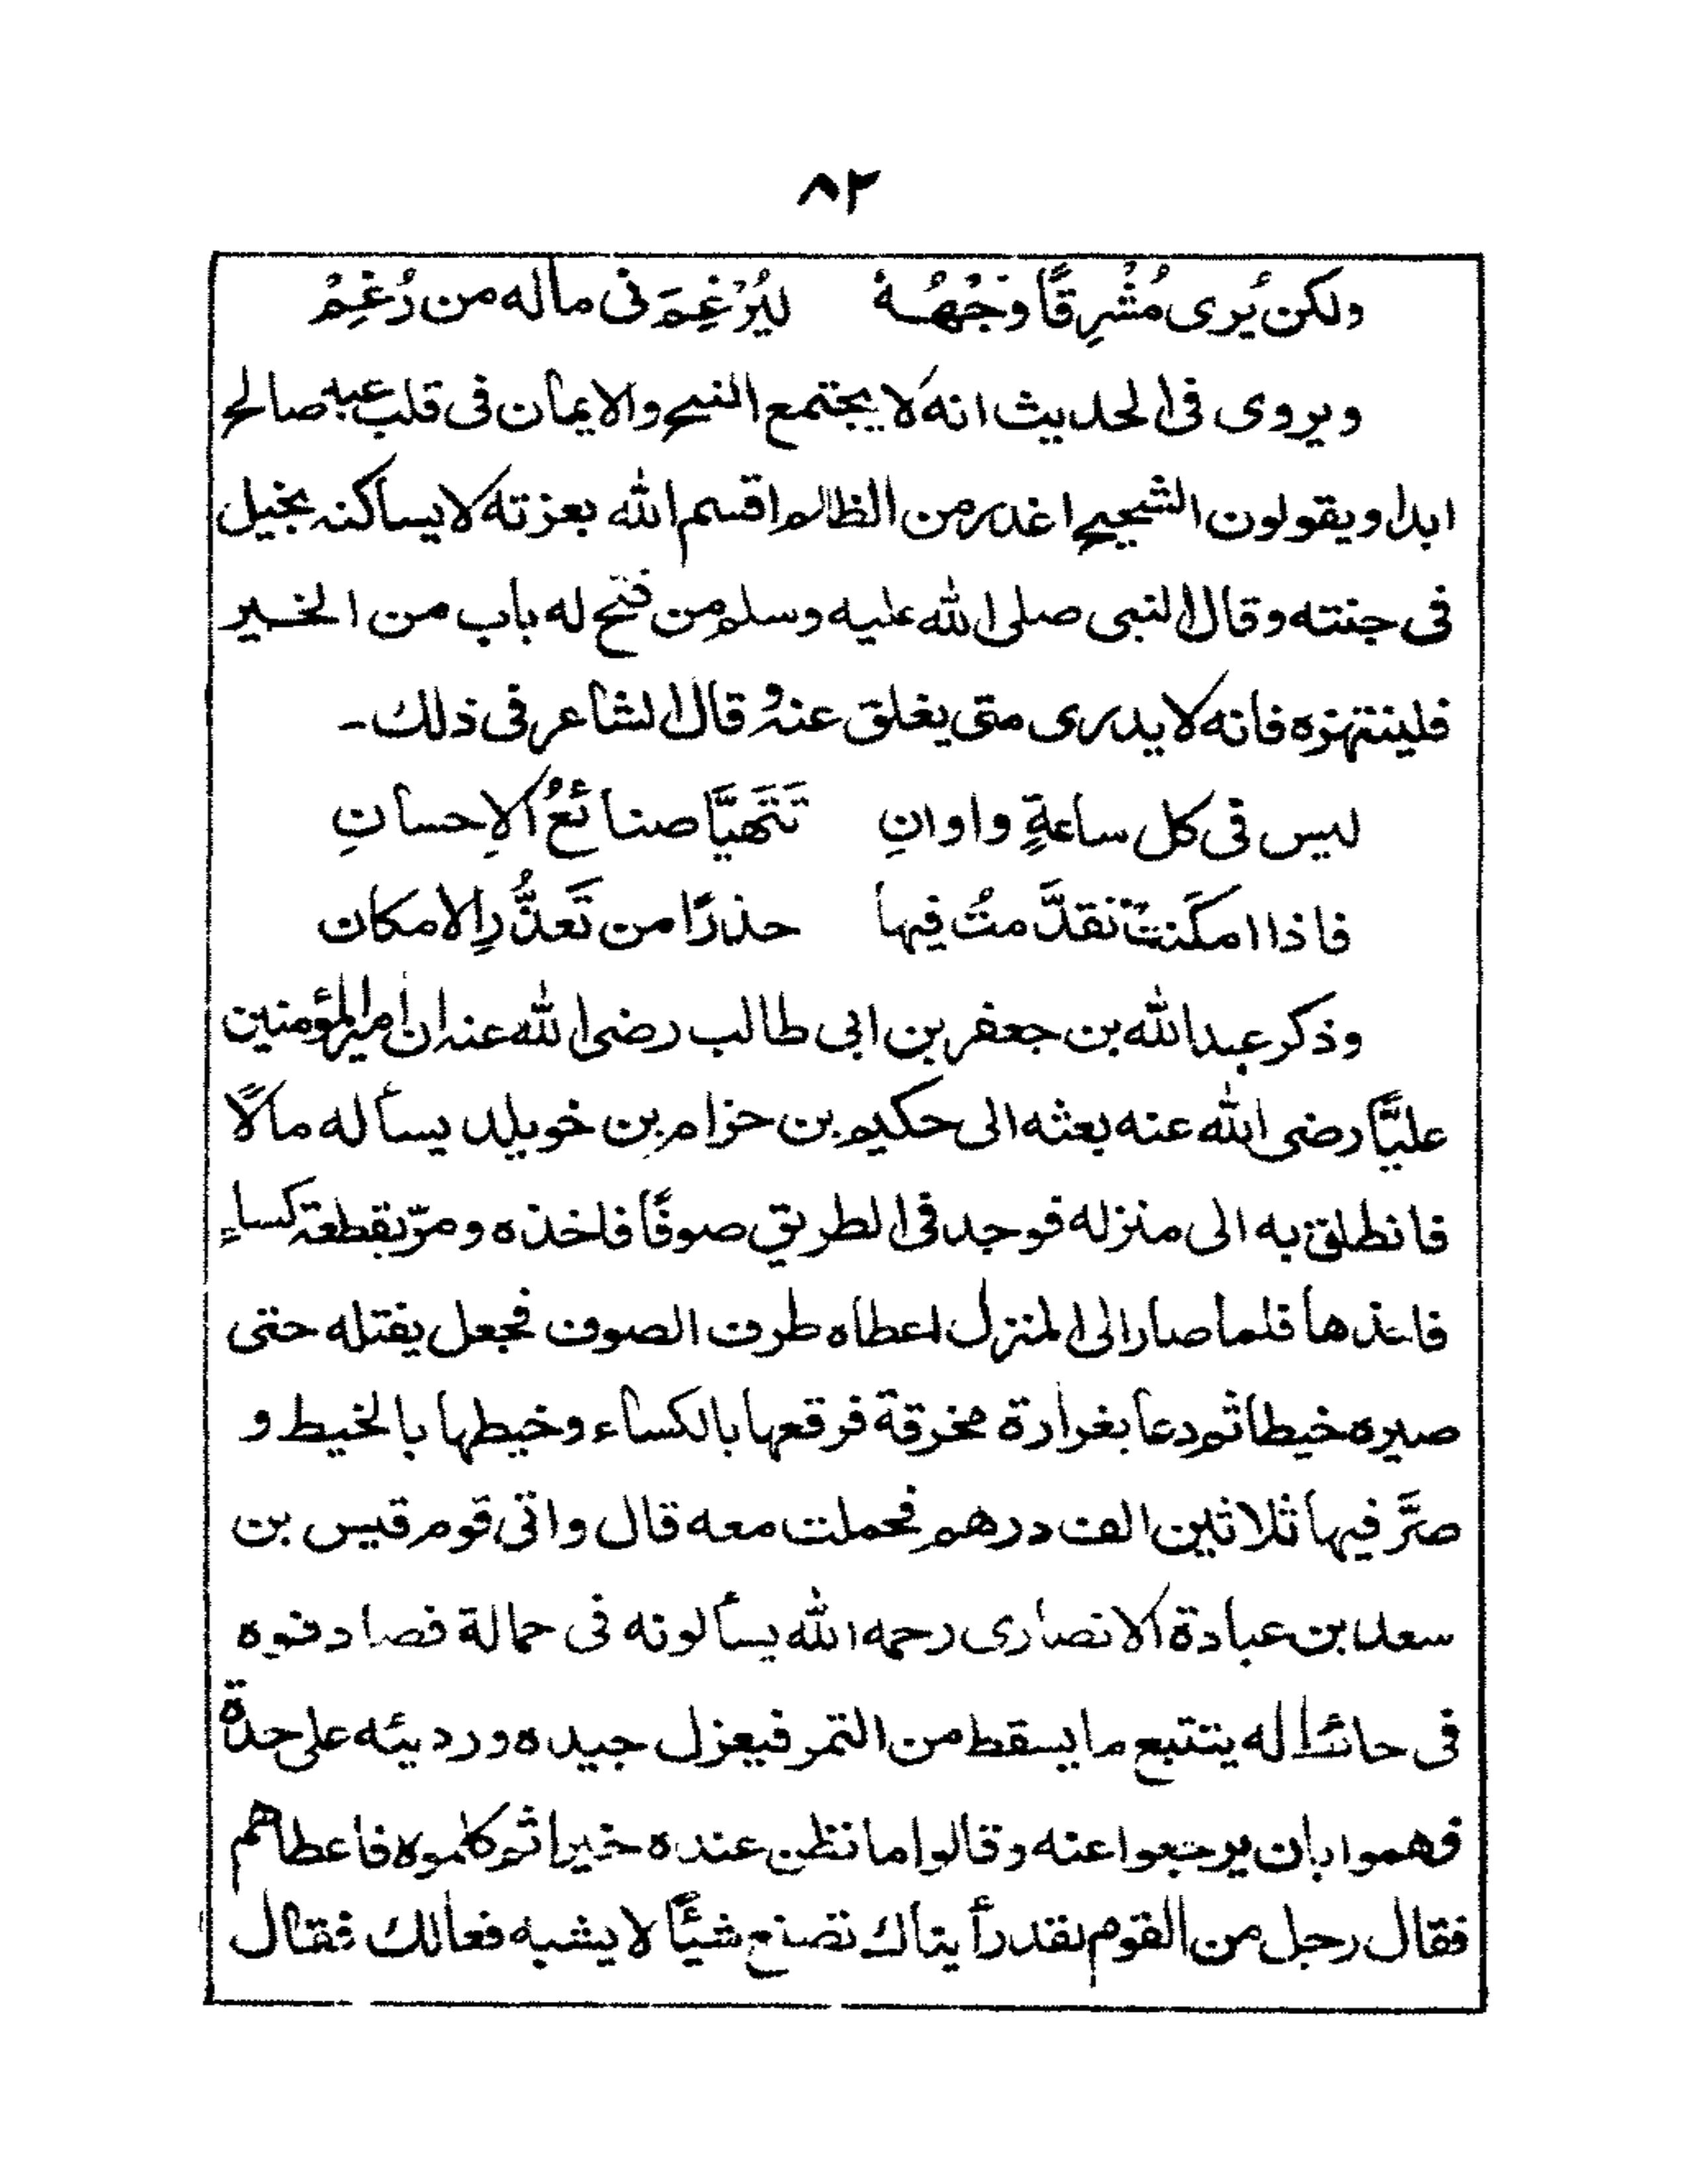 ٨٢
ولكن يُرى مُشْرِقًا وَجْهُهُ لِيُرْغِمَ فى ماله من رُغِمْ
ويروى فى الحديث انه لا يجتمع الشح والايمان فى قلب عبد صالح
ابدا ويقولون الشحيح اغدر من الظالم اقسم الله بعزته لا يساكنه بخيل
فى جنته وقال النبى صلى الله عليه وسلم من فتح له باب من الخير
فلينتهزه فانه لا يدرى متى يغلق عنه و قال الشاعر فى ذلك ـ
ليس فى كل ساعةٍ واوانِ تَتَهَيَّأ صنائعُ الاِحسانِ
فاذا امكَنتْ تقدَّمتُ فيها حذرًا من تَعذُّرِ الامكان
وذكر عبد الله بن جعفر بن ابى طالب رضى الله عنه ان امير المؤمنين
عليًّا رضى الله عنه بعثه الى حكيم بن حزام بن خويلد يسأله مالًا
فانطلق به الى منزله فوجد فى الطريق صوفًا فاخذه ومرّ بقطعة كساءٍ
فاخذها فلما صارا الى المنزل اعطاه طرف الصوف فجعل يفتله حتى
صيره خيطا ثم دعا بغرارة مخرقة فرقعها بالكساء وخيطها بالخيط و
صرَّ فيها ثلاثين الف درهم فحملت معه قال واتى قوم قيس بن
سعد بن عبادة الانصارى رحمه الله يسألونه فى حمالة فصادفوه
فى حائط له يتتبع ما يسقط من التمر فيعزل جيده ورديئه على حدة
فهموا بان يرجعوا عنه وقالوا ما نظن عنده خيرا ثم كلموه فاعطاهم
فقال رجل من القوم لقد رأيناك تصنع شيئًا لا يشبه فعالك فقال